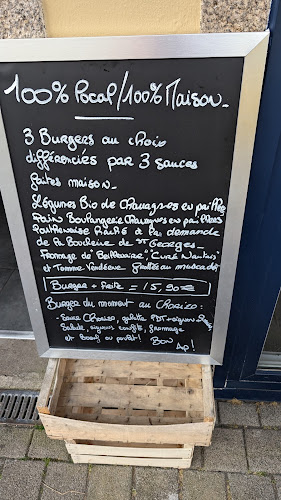 100% Local/100% Maison_
3 Burgers au choix
différenciés par 3 sauces
faites maison_
Légumes Bio de Chauagnes en paillers
Pain Boulangerie Chauagnes en paillers
Parthenaise haché à la demande
de la Boucherie de St Georges_
Fromage de "Belleuaire", Curé Nantais"
et Tomme Vendéenne au muscadet
Burger + Frite = 15,90€
Burger du moment au Chorizo:
- Sauce Chorizo, galette PDT + oignon
Salade, oignons confits, fromage
et Boeuf ou poulet! Bon
Ap!